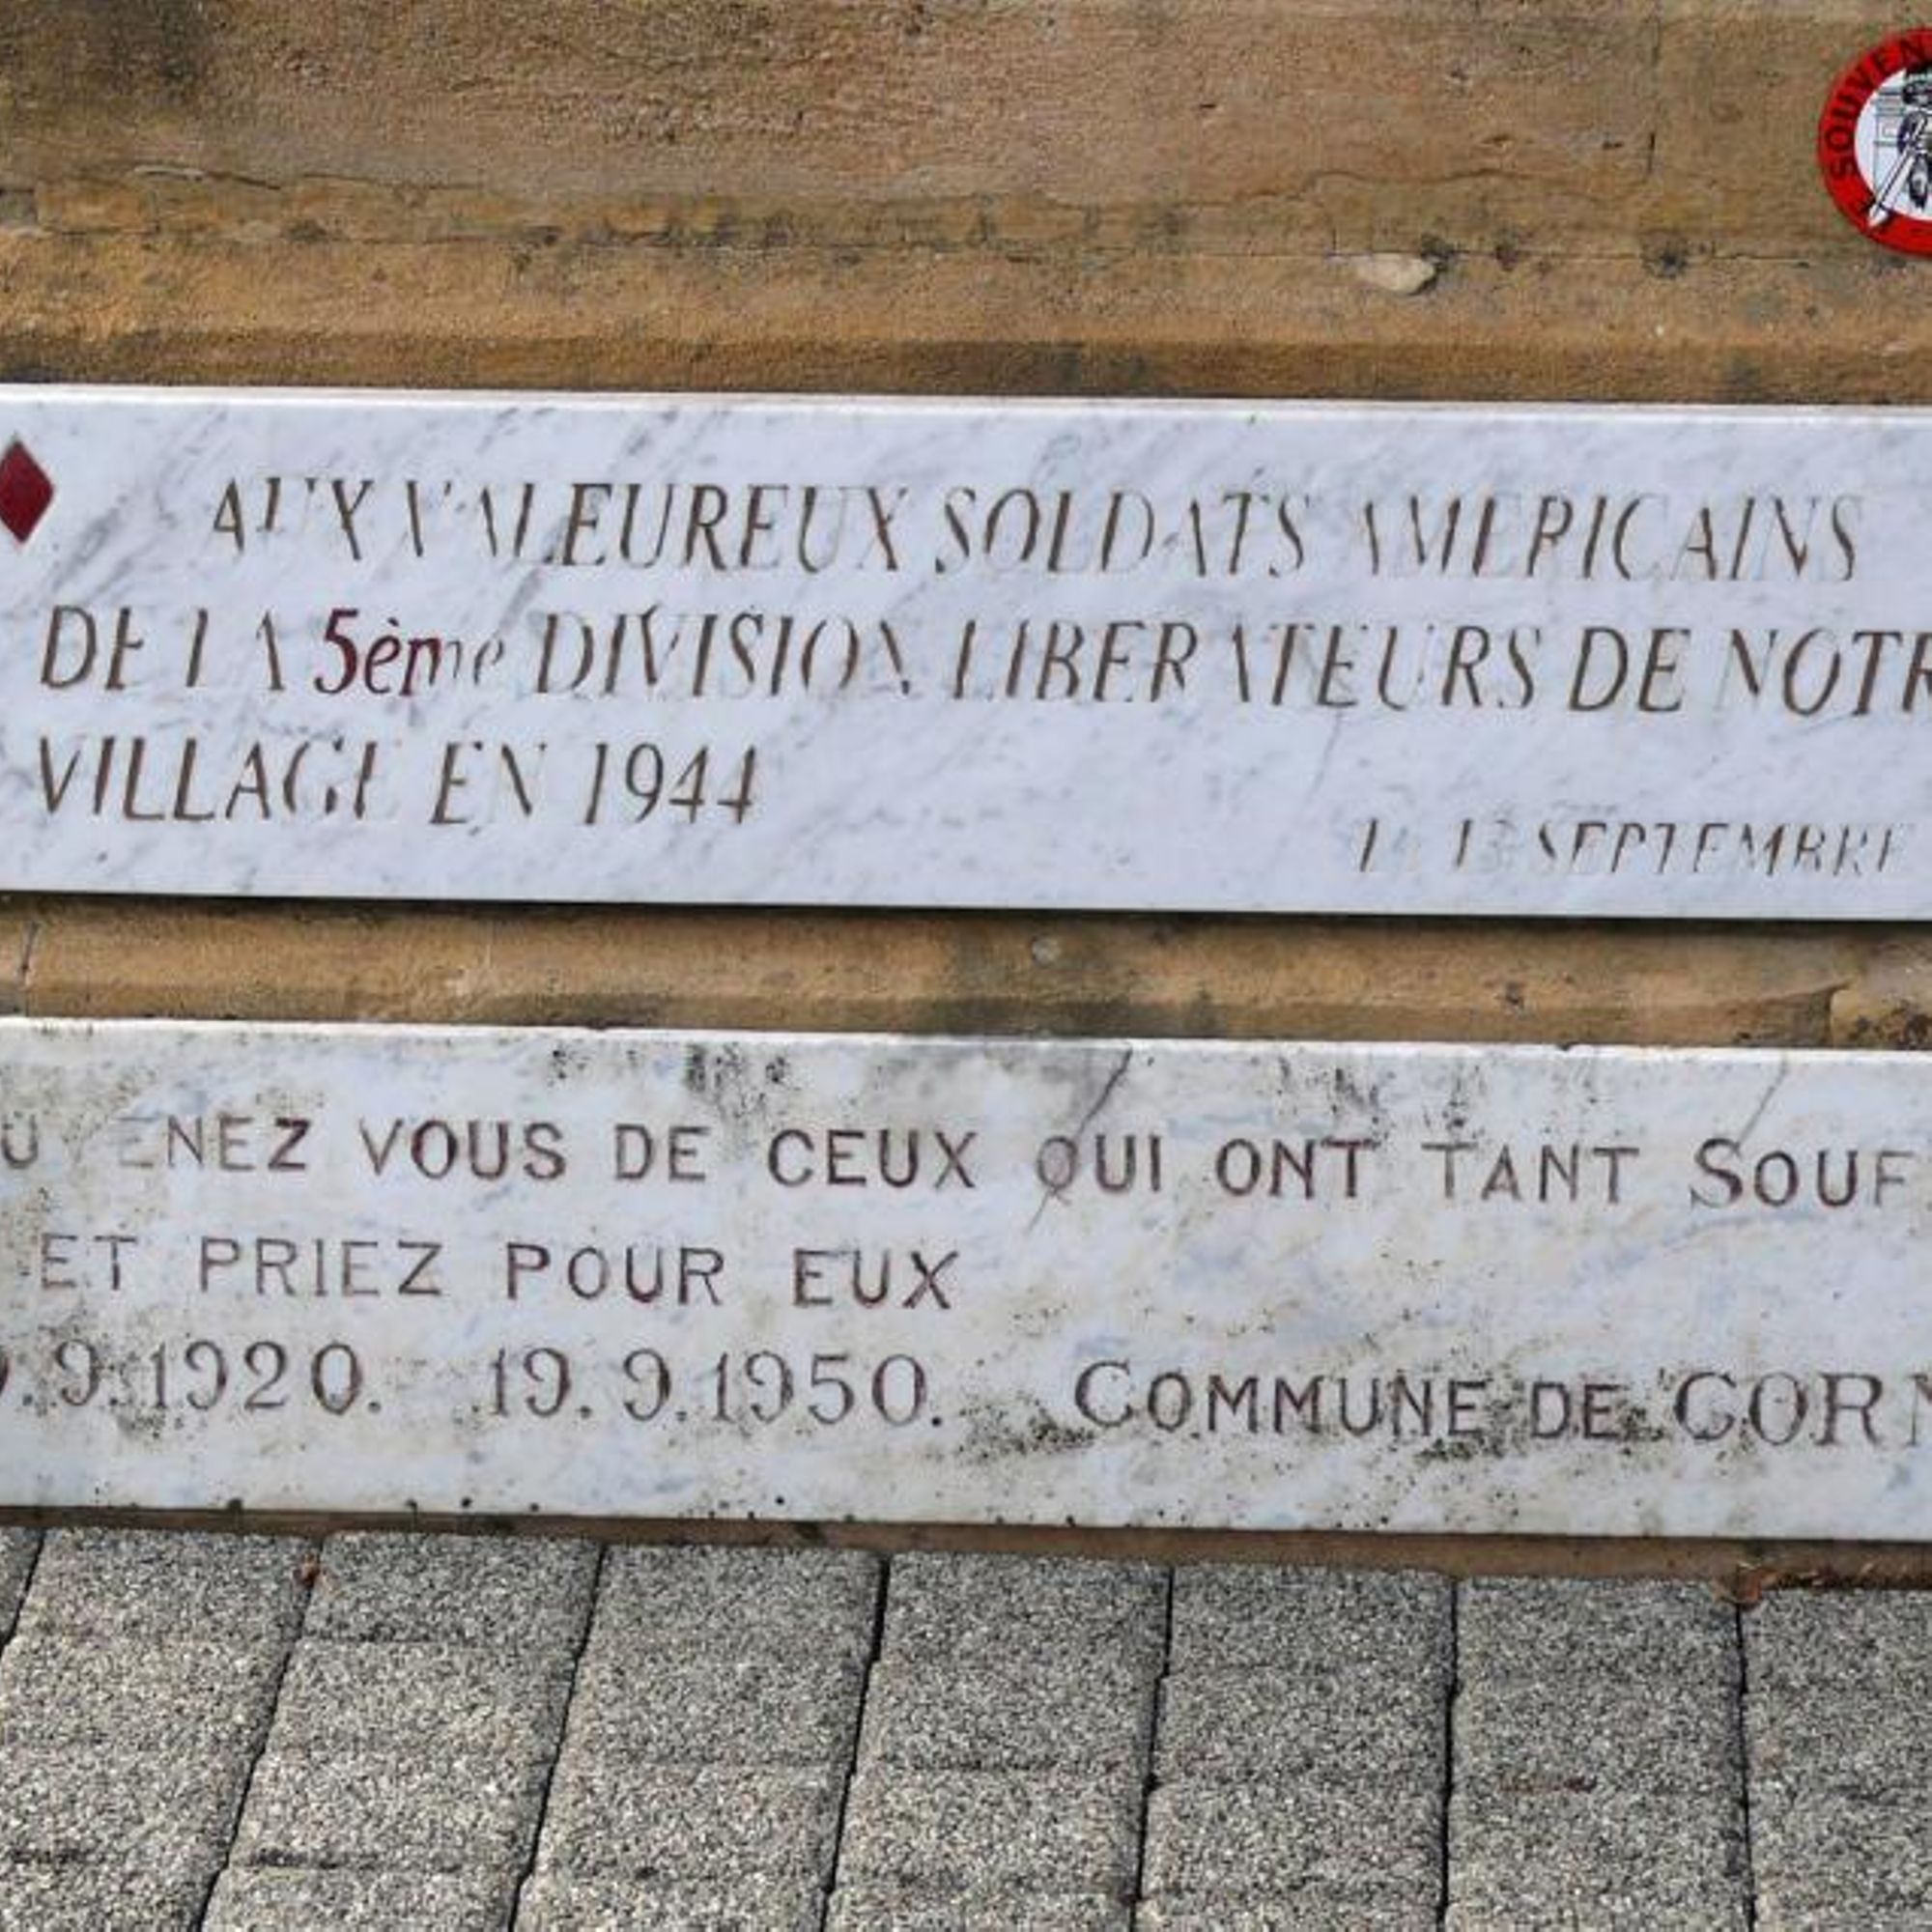 SOUVEN
AUX VALEUREUX SOLDATS AMERICAINS
DE LA 5ème DIVISION LIBERATEURS DE NOTR
VILLAGE EN 1944
SEPTEMBRE
U ENEZ VOUS DE CEUX QUI ONT TANT SOUF
ET PRIEZ POUR EUX
9.9.1920. 19.9.1950. COMMUNE DE CORN